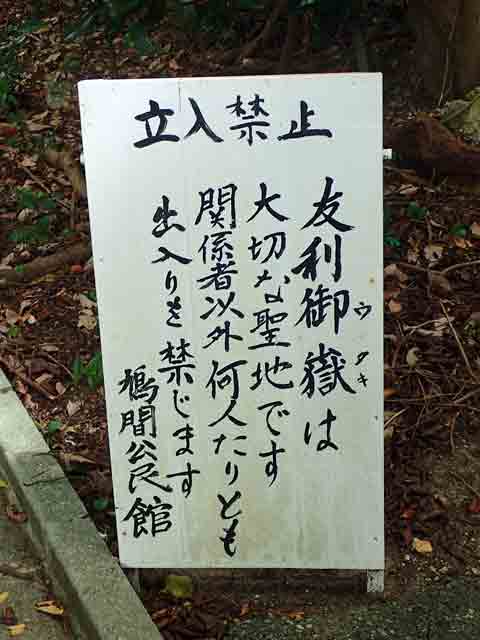 立入禁止
友利御嶽は
ウタキ
大切な聖地です
関係者以外何人たりとも
出入りを禁じます
鳩間公民館